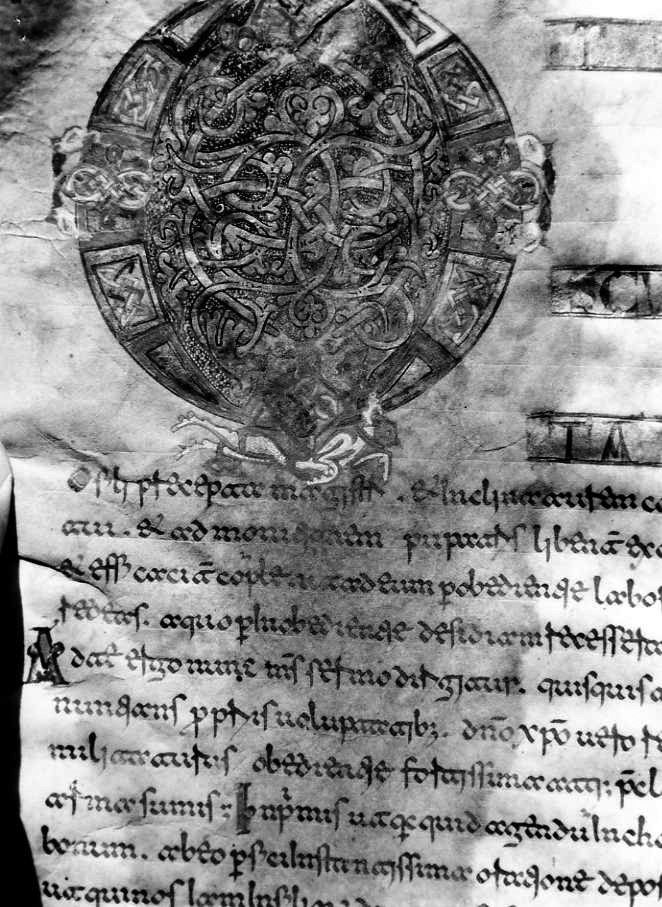 ACU
TA
O fili precepta magistri. & Inclina aurem co
tui. & admonitionem pii patris libent exc
& efficacit cople. ut ad eum p obedientie labo
redeas. a quo p Inobedientie desidiam recesse
Ad te ergo nunc m sermo dirigitur. quisquis a
nuntians propriis uoluptatib;. dno xpo uero re
militaturus obedientie fortissima atq; pcl
arma sumis; Inprimis ut quicquid agendu Incho
bonum. ab eo pfici Instantissima oratione depos
ut qui nos iam In